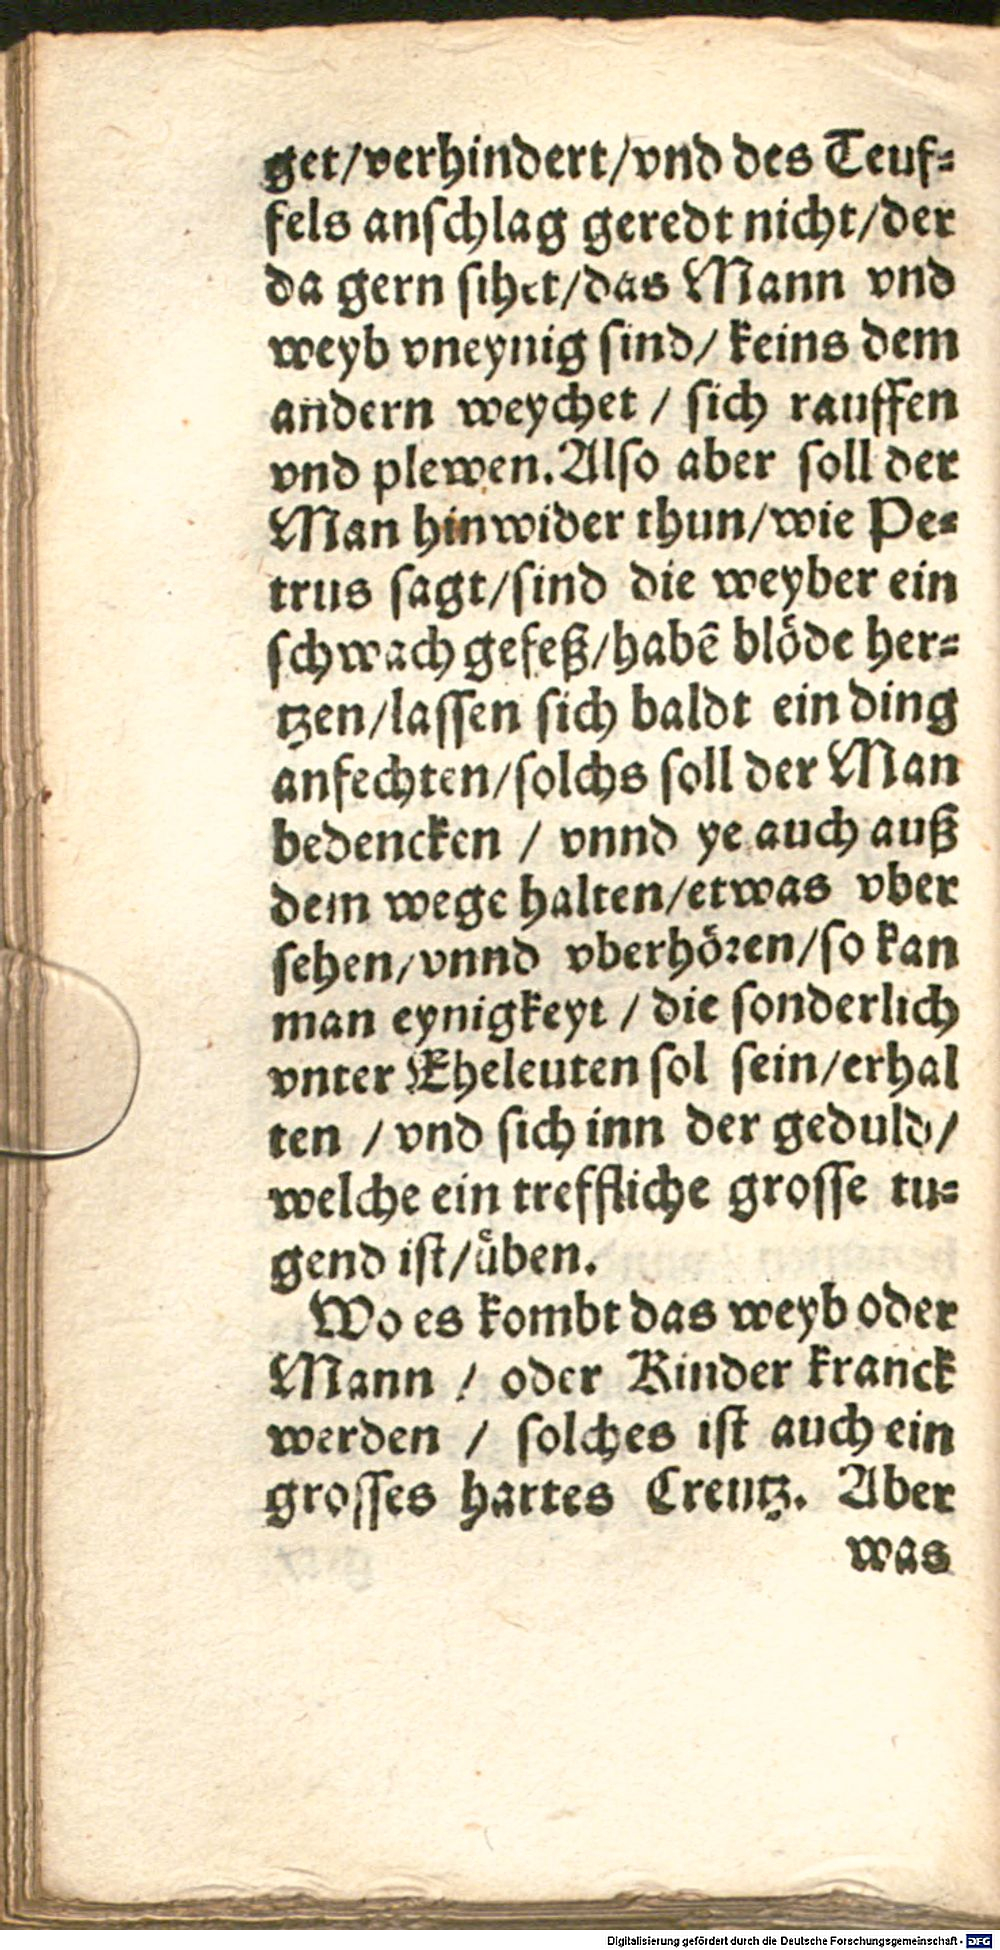 get/verhindert/vnd des Teuf⸗
fels anſchlag geredt nicht/der
da gern ſihet/das Mann vnd
weyb vneynig ſind/ keins dem
andern weychet / ſich rauffen
vnd plewen. Alſo aber ſoll der
Man hinwider thun/wie Pe⸗
trus ſagt/ſind die weyber ein
ſchwach gefeß/habẽ bloͤde her⸗
tzen/laſſen ſich baldt ein ding
anfechten/ſolchs ſoll der Man
bedencken / vnnd ye auch auß
dem wege halten/etwas vber
ſehen/vnnd vberhoͤꝛen/ſo kan
man eynigkeyt / die ſonderlich
vnter Eheleuten ſol ſein/erhal
ten / vnd ſich inn der geduld/
welche ein treffliche groſſe tu⸗
gend iſt/uͤben.
Wo es kombt das weyb oder
Mann / oder Kinder kranck
werden / ſolches iſt auch ein
groſſes hartes Creutz. Aber
was
Digitalisierung gefördert durch die Deutsche Forschungsgemeinschaft - DFG